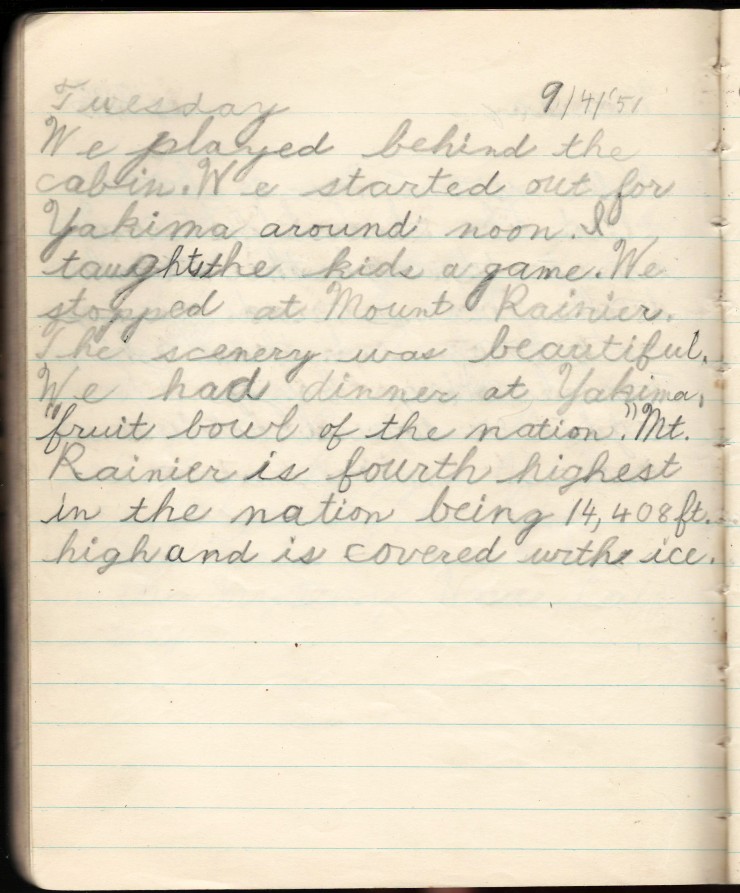 Tuesday 9/4/'51
We played behind the
cabin. We started out for
Yakima around noon. I
taught the kids a game. We
stopped at Mount Rainier.
The scenery was beautiful.
We had dinner at Yakima,
"fruit bowl of the nation." Mt.
Rainier is fourth highest
in the nation being 14,408 ft.
high and is covered with ice.